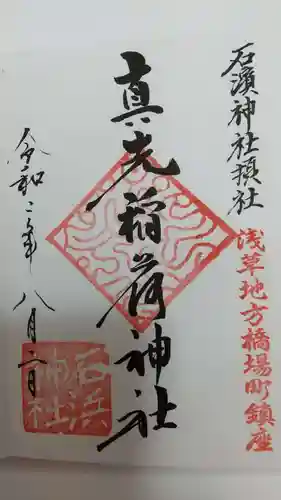 石濱神社摂社
浅草地方橋場町鎮座
真先稲荷神社
令和二年八月二日
石浜
神社